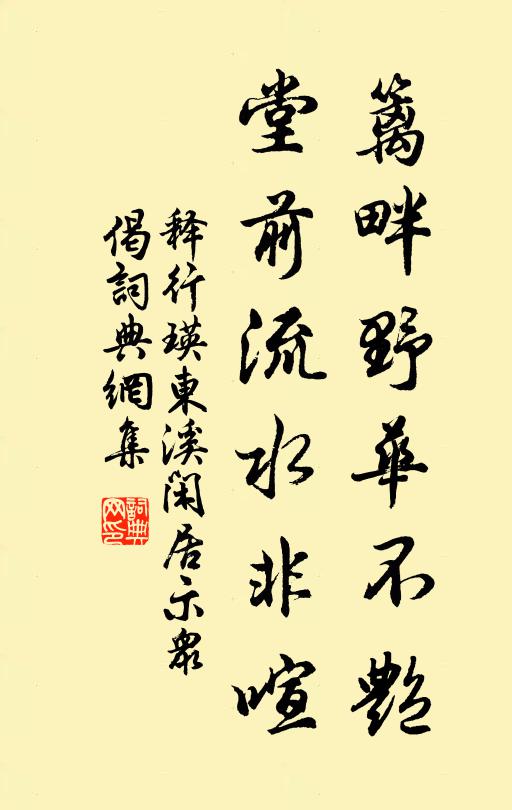 籬畔野華不艷
堂前流水非喧
释行瑛東溪闲居示衆
偈詞典網集
詞典
网印